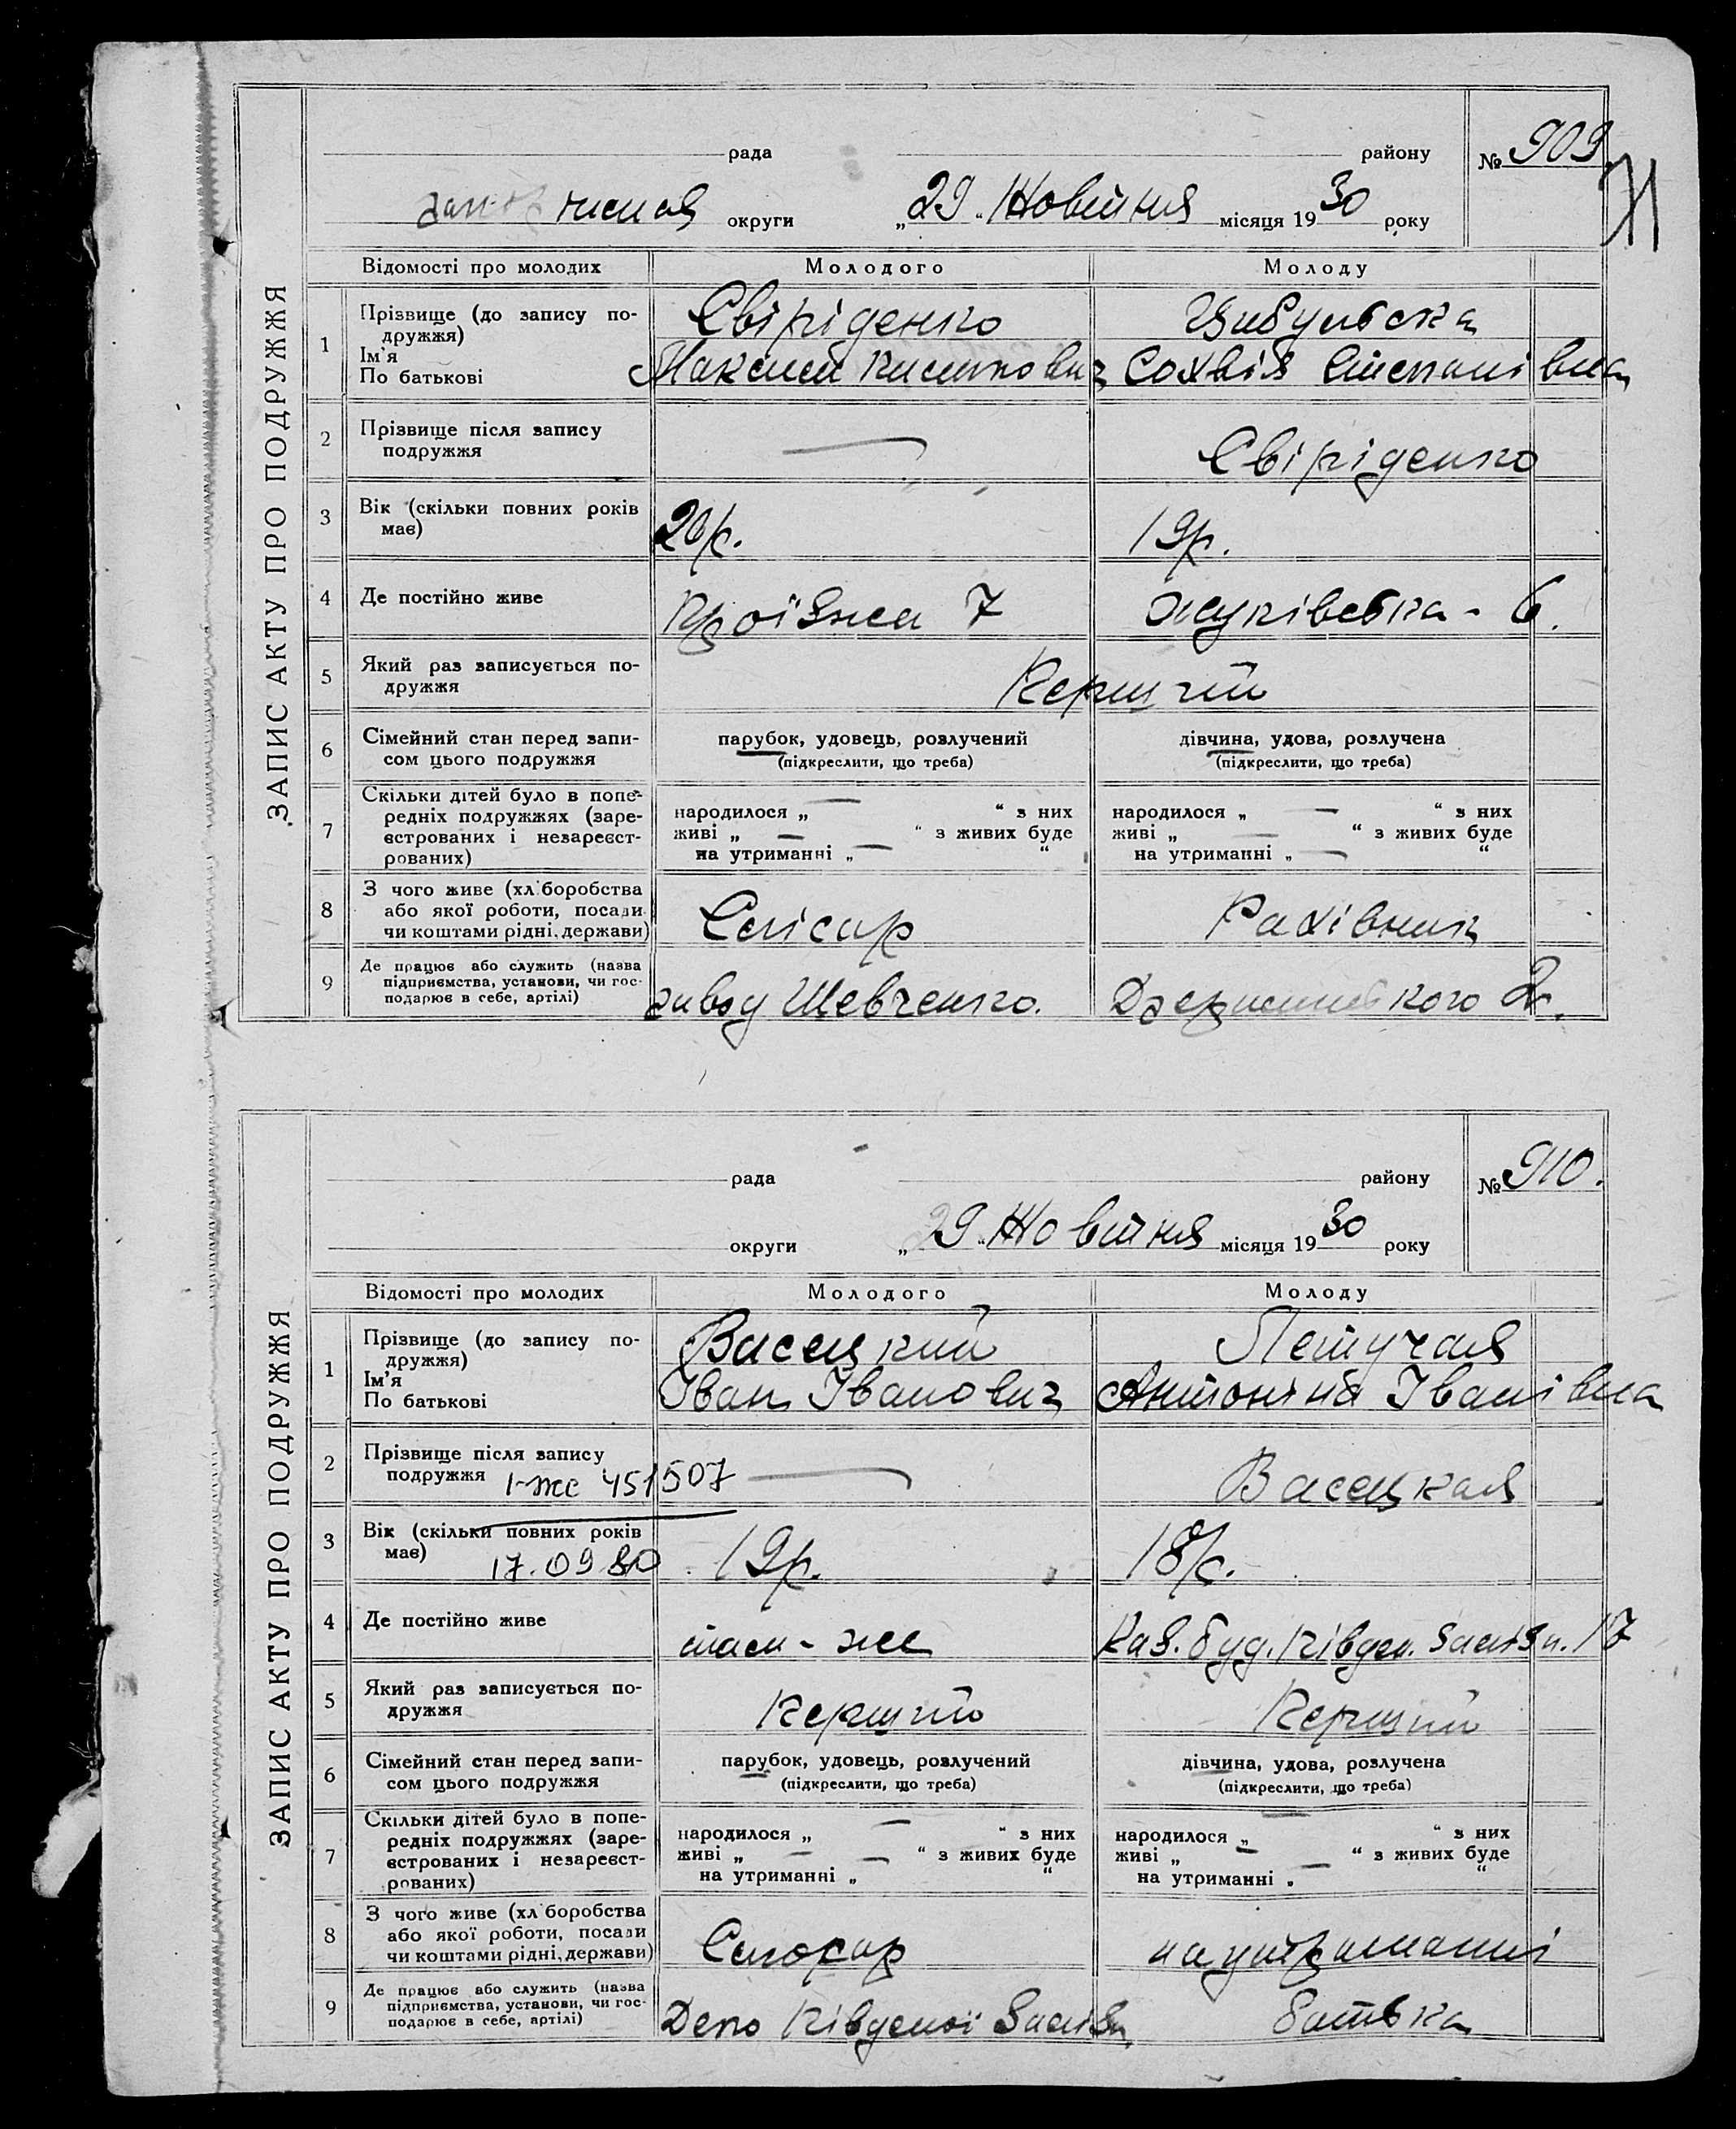 ЗАПИС АКТУ ПРО ПОДРУЖЖЯ
рада району № 909
71
округи „29“ Жовтня місяця 1930 року
Відомості про молодих Молодого Молоду
1 Прізвище (до запису по-
дружжя)
Ім'я
По батькові
Свіріденко
Максим Пилипович
Цибульська
Софія Степанівна
2 Прізвище після запису
подружжя
— Свіріденко
3 Вік (скільки повних років
має)
20р. 19р.
4 Де постійно живе
Проїзна 7 6.
5 Який раз записується по-
дружжя
Перший
6 Сімейний стан перед запи-
сом цього подружжя
парубок, удовець, розлучений
(підкреслити, що треба)
дівчина, удова, розлучена
(підкреслити, що треба)
7 Скільки дітей було в попе-
редніх подружжях (заре-
єстрованих і незареєст-
рованих)
народилося „ — “ з них
живі „ — “ з живих буде
на утриманні „ — “
народилося „ — “ з них
живі „ — “ з живих буде
на утриманні „ — “
8 З чого живе (хліборобства
або якої роботи, посади
чи коштами рідні, держави)
Слісар Рахівник
9 Де працює або служить (назва
підприємства, установи, чи гос-
подарює в себе, артілі)
завод Шевченко. Дзержинського
ЗАПИС АКТУ ПРО ПОДРУЖЖЯ
рада району № 910.
округи „29“ Жовтня місяця 1930 року
Відомості про молодих Молодого Молоду
1 Прізвище (до запису по-
дружжя)
Ім'я
По батькові
Васецкий
Іван Іванович
Летучая
Антоніна Іванівна
2 Прізвище після запису
подружжя
I-жс 451507
— Васецкая
3 Вік (скільки повних років
має)
17.09.80
19р. 18р.
4 Де постійно живе
там-же Каз. буд. Півден. Заліз. 17
5 Який раз записується по-
дружжя
Перший Перший
6 Сімейний стан перед запи-
сом цього подружжя
парубок, удовець, розлучений
(підкреслити, що треба)
дівчина, удова, розлучена
(підкреслити, що треба)
7 Скільки дітей було в попе-
редніх подружжях (заре-
єстрованих і незареєст-
рованих)
народилося „ — “ з них
живі „ — “ з живих буде
на утриманні „ — “
народилося „ — “ з них
живі „ — “ з живих буде
на утриманні „ — “
8 З чого живе (хліборобства
або якої роботи, посади
чи коштами рідні, держави)
на утриманні
9 Де працює або служить (назва
підприємства, установи, чи гос-
подарює в себе, артілі)
Депо Південої Заліз батька